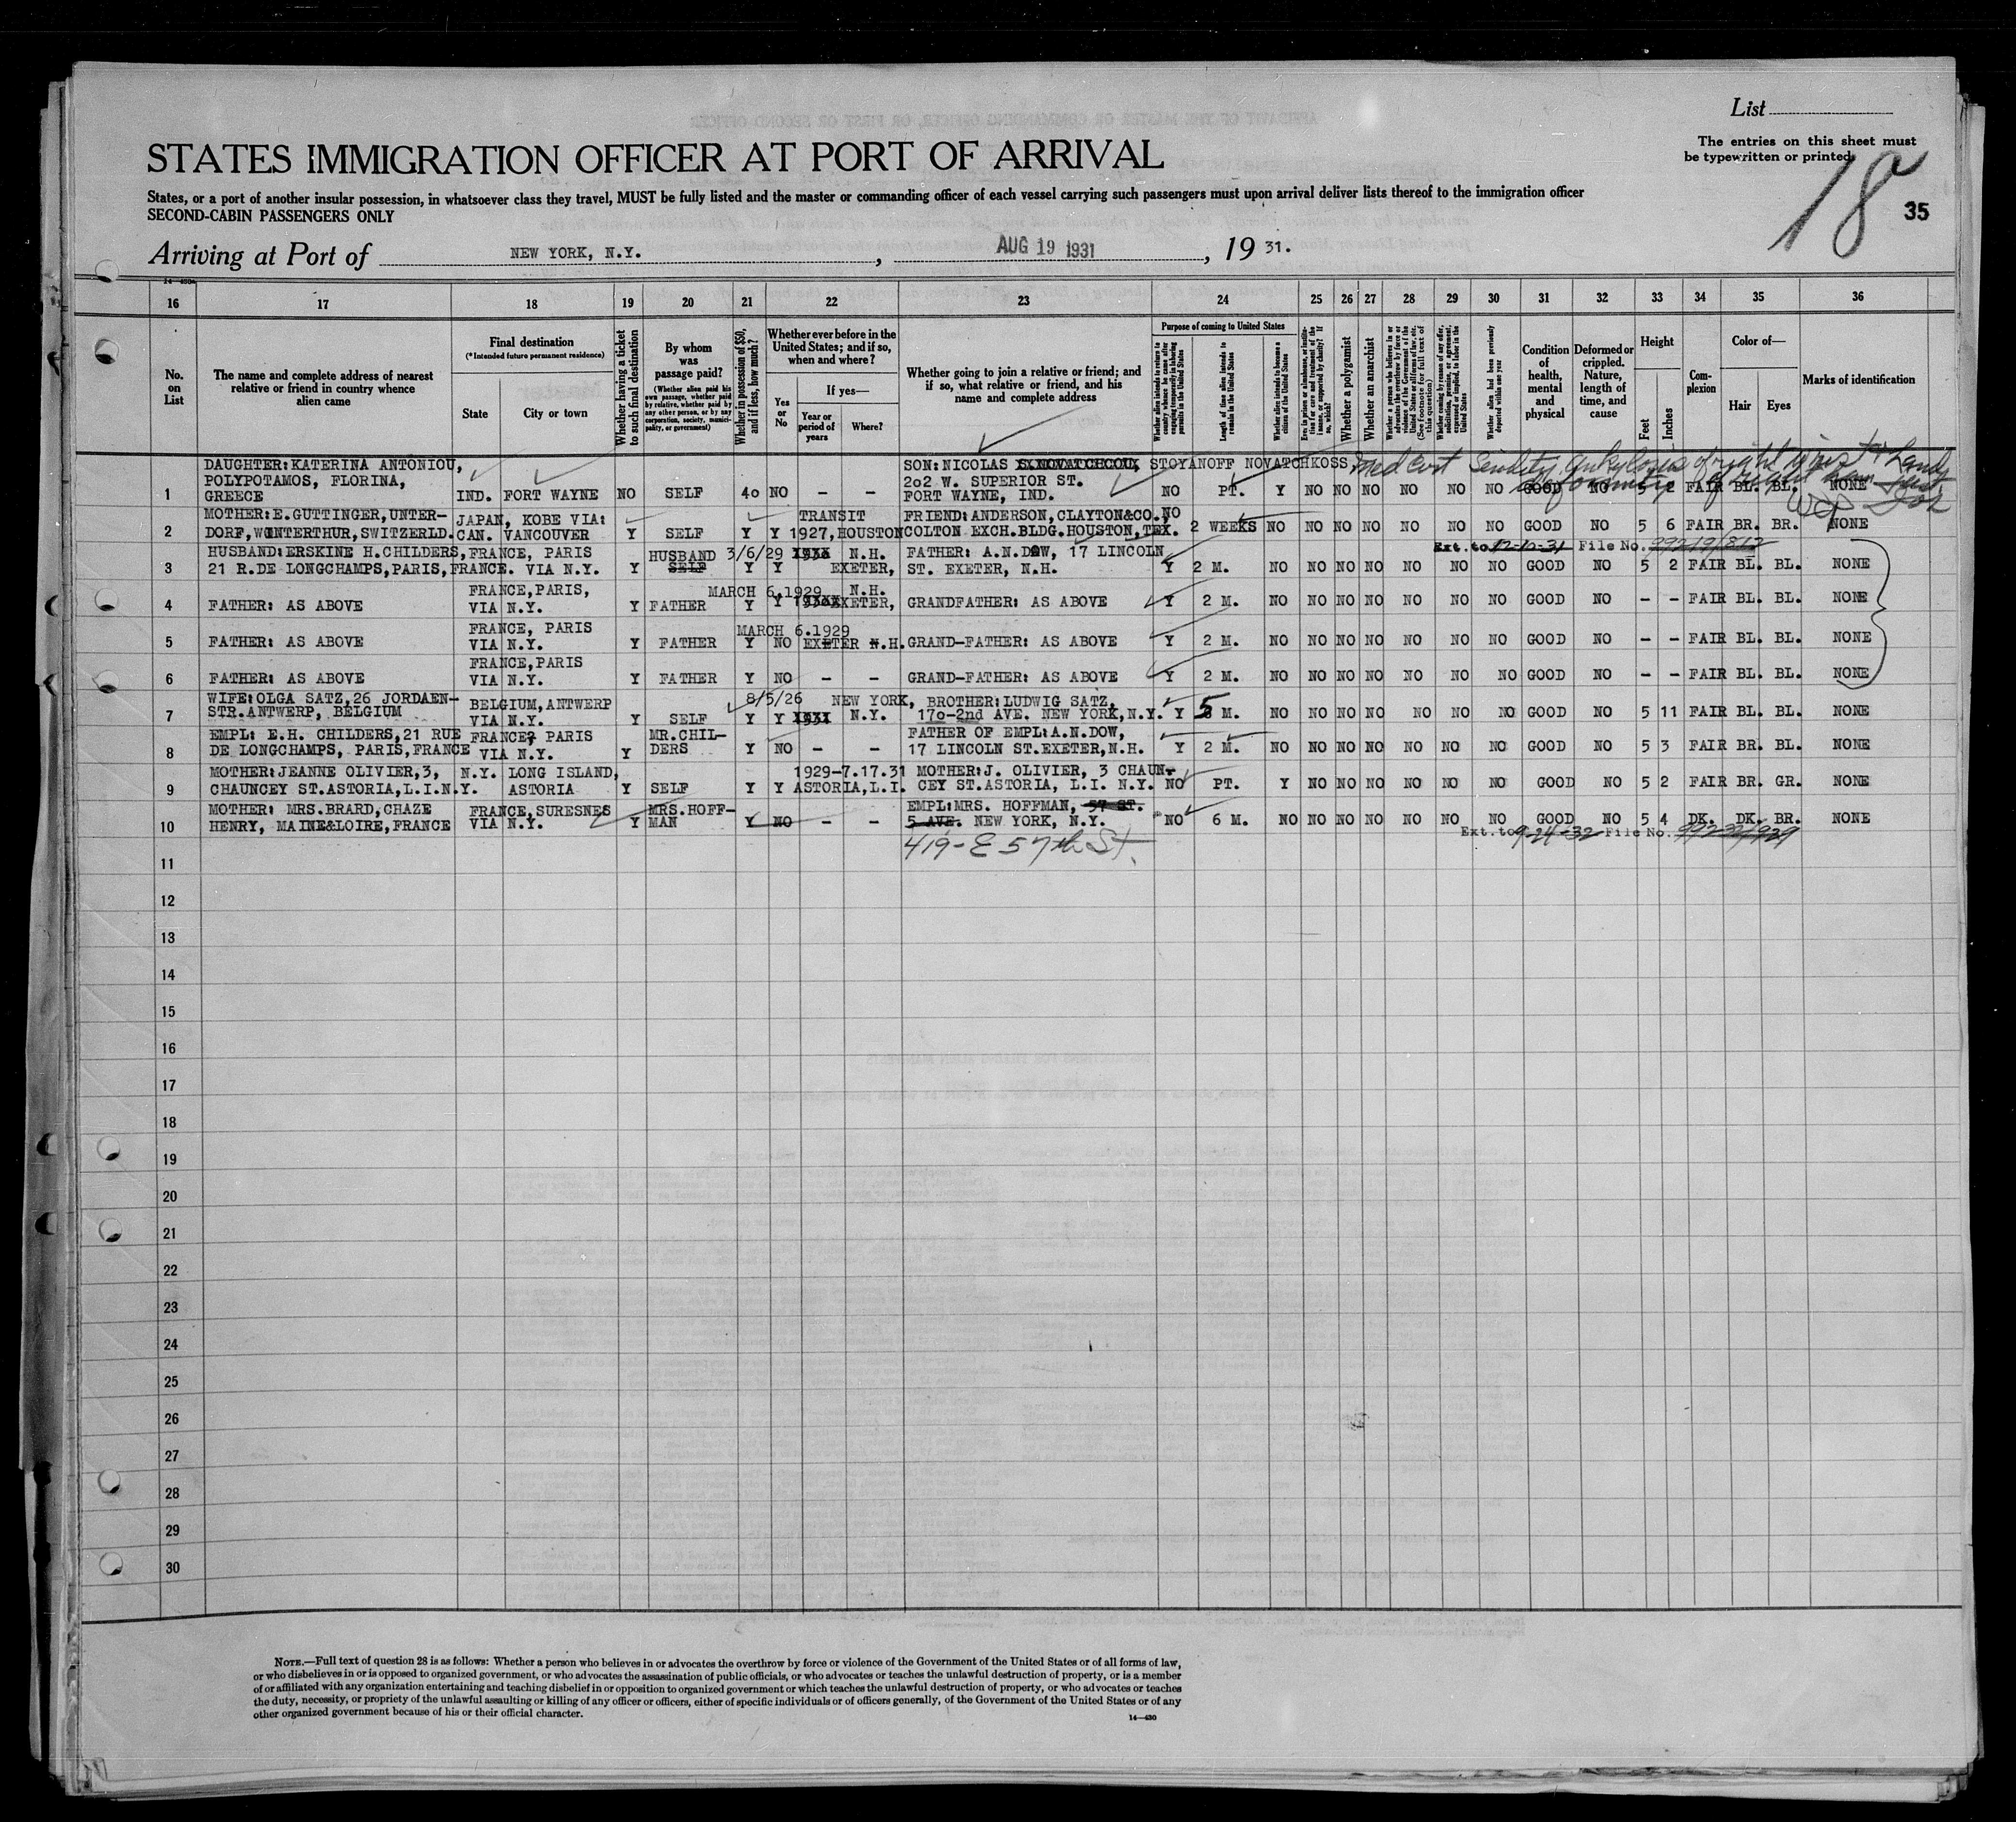 List
The entries on this sheet must
be typewritten or printed.
18a
35
STATES IMMIGRATION OFFICER AT PORT OF ARRIVAL
States, or a port of another insular possession, in whatsoever class they travel, MUST be fully listed and the master or commanding officer of each vessel carrying such passengers must upon arrival deliver lists thereof to the immigration officer
SECOND-CABIN PASSENGERS ONLY
Arriving at Port of NEW YORK, N.Y., AUG 19 1931, 19 31.
16 17 18 19 20 21 22 23 24 25 26 27 28 29 30 31 32 33 34 35 36
No. on List
The name and complete address of nearest relative or friend in country whence alien came
Final destination
(*Intended future permanent residence)
State
City or town
Whether having a ticket to such final destination
By whom was passage paid?
(Whether alien paid his own passage, whether paid by relative, whether paid by any other person, or by any corporation, society, municipality, or government)
Whether in possession of $50, and if less, how much?
Whether ever before in the United States; and if so, when and where?
Yes or No
If yes—
Year or period of years
Where?
Whether going to join a relative or friend; and if so, what relative or friend, and his name and complete address
Purpose of coming to United States
Whether alien intends to return to country whence he came after engaging temporarily in laboring pursuits in the United States
Length of time alien intends to remain in the United States
Whether alien intends to become a citizen of the United States
Ever in prison or almshouse, or institution for care and treatment of the insane, or supported by charity? If so, which?
Whether a polygamist
Whether an anarchist
Whether a person who believes in or advocates the overthrow by force or violence of the Government of the United States or all forms of law, etc. (See footnote for full text of this question)
Whether coming by reason of any offer, solicitation, promise, or agreement, expressed or implied, to labor in the United States
Whether alien had been previously deported within one year
Condition of health, mental and physical
Deformed or crippled. Nature, length of time, and cause
Height
Feet
Inches
Complexion
Color of—
Hair
Eyes
Marks of identification
1 DAUGHTER: KATERINA ANTONIOU, POLYPOTAMOS, FLORINA, GREECE IND. FORT WAYNE NO SELF 40 NO – – SON: NICOLAS STOYANOFF NOVATCHKOSS 202 W. SUPERIOR ST. FORT WAYNE, IND. NO PT. Y NO NO NO NO NO NO GOOD NO 5 2 FAIR BL. BL. NONE
Med Cert Senility, ankylosis of right wrist & hand
deformity of right
2 MOTHER: E. GUTTINGER, UNTER-DORF, WINTERTHUR, SWITZERLD. JAPAN, KOBE VIA: CAN. VANCOUVER Y SELF Y Y TRANSIT 1927, HOUSTON FRIEND: ANDERSON, CLAYTON&CO., COLTON EXCH.BLDG. HOUSTON, TEX. NO 2 WEEKS NO NO NO NO NO NO NO GOOD NO 5 6 FAIR BR. BR. NONE
Ext. to 12-12-31 File No. 99219/812
3 HUSBAND: ERSKINE H. CHILDERS, 21 R.DE LONGCHAMPS, PARIS, FRANCE. FRANCE, PARIS VIA N.Y. Y HUSBAND SELF Y Y 3/6/29 N.H. EXETER, FATHER: A.N.DOW, 17 LINCOLN ST. EXETER, N.H. Y 2 M. NO NO NO NO NO NO NO GOOD NO 5 2 FAIR BL. BL. NONE
4 FATHER: AS ABOVE FRANCE, PARIS, VIA N.Y. Y FATHER Y Y MARCH 6.1929 N.H. EXETER, GRANDFATHER: AS ABOVE Y 2 M. NO NO NO NO NO NO NO GOOD NO – – FAIR BL. BL. NONE
5 FATHER: AS ABOVE FRANCE, PARIS VIA N.Y. Y FATHER Y NO MARCH 6.1929 EXETER N.H. GRAND-FATHER: AS ABOVE Y 2 M. NO NO NO NO NO NO NO GOOD NO – – FAIR BL. BL. NONE
6 FATHER: AS ABOVE FRANCE, PARIS VIA N.Y. Y FATHER Y NO – – GRAND-FATHER: AS ABOVE Y 2 M. NO NO NO NO NO NO NO GOOD NO – – FAIR BL. BL. NONE
7 WIFE: OLGA SATZ, 26 JORDAEN-STR. ANTWERP, BELGIUM BELGIUM, ANTWERP VIA N.Y. Y SELF Y Y 8/5/26 1931 NEW YORK, N.Y. BROTHER: LUDWIG SATZ, 170-2nd AVE. NEW YORK, N.Y. Y 5 M. NO NO NO NO NO NO NO GOOD NO 5 11 FAIR BL. BL. NONE
8 EMPL: E.H. CHILDERS, 21 RUE DE LONGCHAMPS, PARIS, FRANCE FRANCE, PARIS VIA N.Y. Y MR. CHIL-DERS Y NO – – FATHER OF EMPL: A.N.DOW, 17 LINCOLN ST. EXETER, N.H. Y 2 M. NO NO NO NO NO NO NO GOOD NO 5 3 FAIR BR. BL. NONE
9 MOTHER: JEANNE OLIVIER, 3, CHAUNCEY ST. ASTORIA, L.I.N.Y. N.Y. LONG ISLAND, ASTORIA Y SELF Y Y 1929-7.17.31 ASTORIA, L.I. MOTHER: J. OLIVIER, 3 CHAUN-CEY ST. ASTORIA, L.I. N.Y. NO PT. Y NO NO NO NO NO NO GOOD NO 5 2 FAIR BR. GR. NONE
10 MOTHER: MRS. BRARD, CHAZE HENRY, MAINE&LOIRE, FRANCE FRANCE, SURESNES VIA N.Y. Y MRS. HOFF-MAN Y NO – – EMPL: MRS. HOFFMAN, 57 ST. 5 AVE. NEW YORK, N.Y. NO 6 M. NO NO NO NO NO NO NO GOOD NO 5 4 DK. DK. BR. NONE
419-E 57th St.
Ext. to 9-24-32 File No. 99232/929
11
12
13
14
15
16
17
18
19
20
21
22
23
24
25
26
27
28
29
30
NOTE.—Full text of question 28 is as follows: Whether a person who believes in or advocates the overthrow by force or violence of the Government of the United States or of all forms of law,
or who disbelieves in or is opposed to organized government, or who advocates the assassination of public officials, or who advocates or teaches the unlawful destruction of property, or is a member
of or affiliated with any organization entertaining and teaching disbelief in or opposition to organized government or which teaches the unlawful destruction of property, or who advocates or teaches
the duty, necessity, or propriety of the unlawful assaulting or killing of any officer or officers, either of specific individuals or of officers generally, of the Government of the United States or of any
other organized government because of his or their official character.
14—430